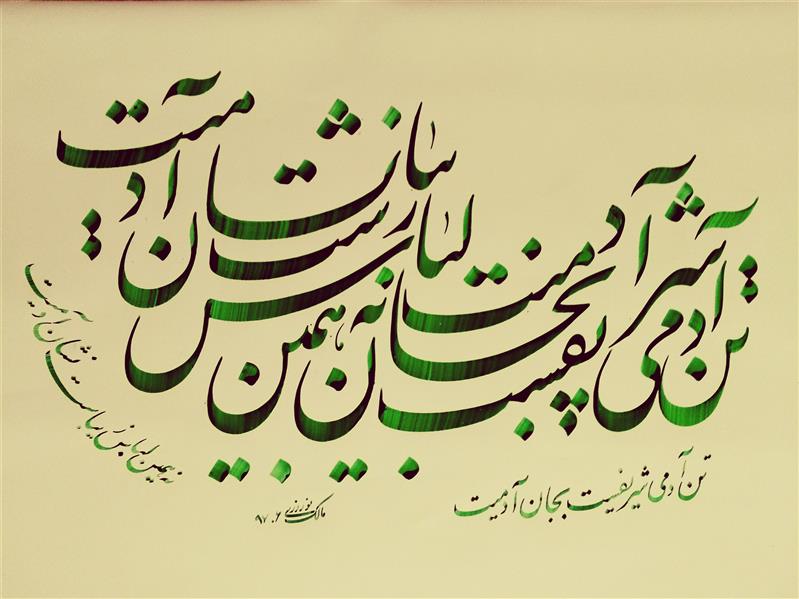 تن آدمی شریفست بجان آدمیت
نه همین لباس زیباست نشان آدمیت
تن آدمی شریفست بجان آدمیت
نه همین لباس زیباست نشان آدمیت
مالک نوروزی ۹۷.۶